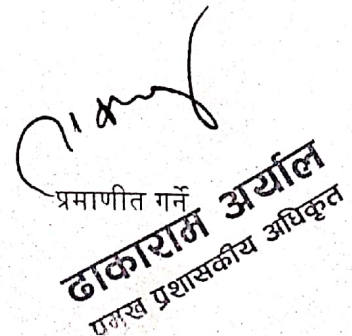 प्रमाणीत गर्ने
ढाकाराम अर्याल
प्रमुख प्रशासकीय अधिकृत